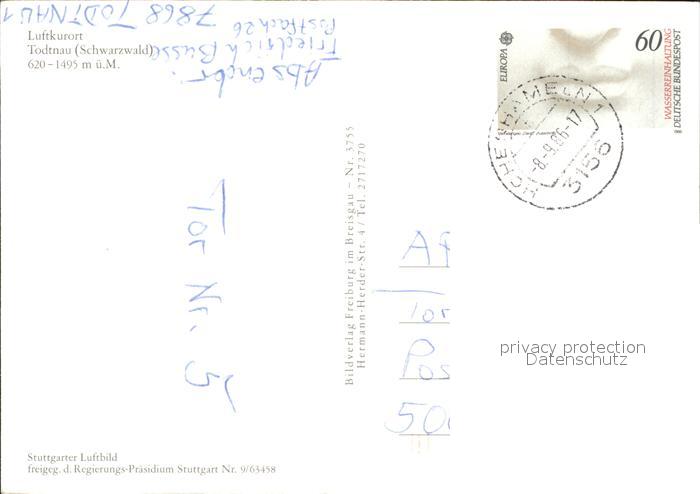 Luftkurort
Todtnau (Schwarzwald)
620-1495 m ü.M.
Absender:
Friedrich Busse
Postfach 26
7868 TODTNAU 1
EUROPA
60
WASSERREINHALTUNG
DEUTSCHE BUNDESPOST
-8.9.86-17
3156
Tor Nr. 5
Bildverlag Freiburg im Breisgau – Nr. 3755
Hermann-Herder-Str. 4 / Tel. 2717270
Af
Tor
Pos
50
privacy protection
Datenschutz
Stuttgarter Luftbild
freigeg. d. Regierungs-Präsidium Stuttgart Nr. 9/63458